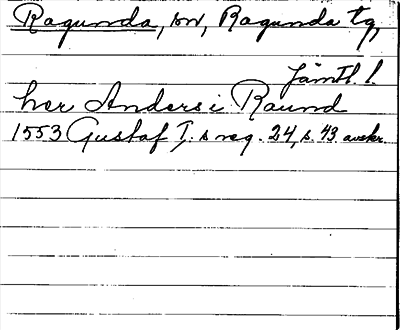 Ragunda, sn, Ragunda tg,
Jämtl. l.
her Anders i Raund
1553 Gustaf I:s reg. 24, s. 43 avskr.